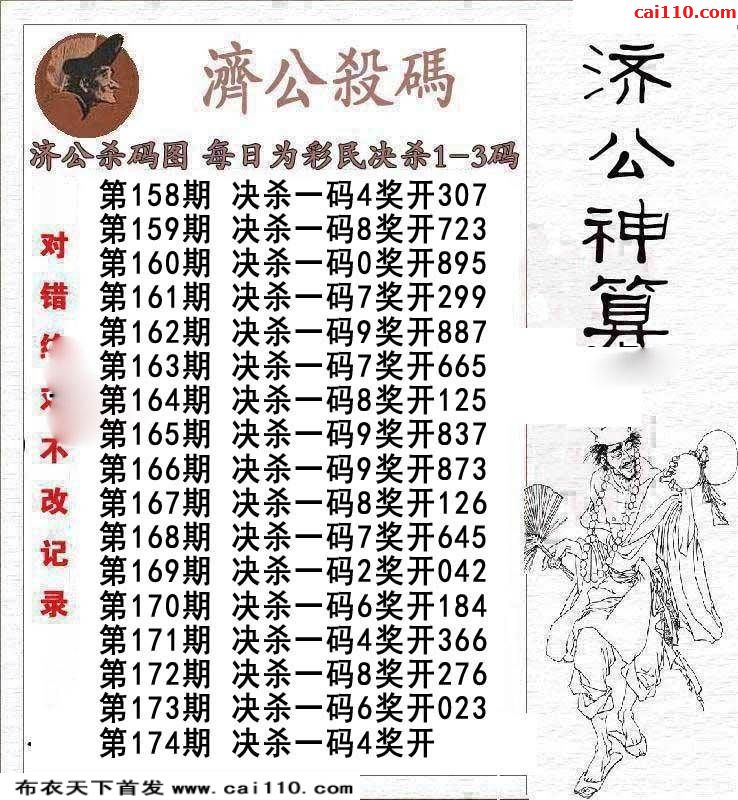 cai110.com
濟公殺碼
济公杀码图 每日为彩民决杀1-3码
第158期 决杀一码4奖开307
第159期 决杀一码8奖开723
第160期 决杀一码0奖开895
第161期 决杀一码7奖开299
第162期 决杀一码9奖开887
第163期 决杀一码7奖开665
第164期 决杀一码8奖开125
第165期 决杀一码9奖开837
第166期 决杀一码9奖开873
第167期 决杀一码8奖开126
第168期 决杀一码7奖开645
第169期 决杀一码2奖开042
第170期 决杀一码6奖开184
第171期 决杀一码4奖开366
第172期 决杀一码8奖开276
第173期 决杀一码6奖开023
第174期 决杀一码4奖开
对错不改记录
济公神算
布衣天下首发 www.cai110.com